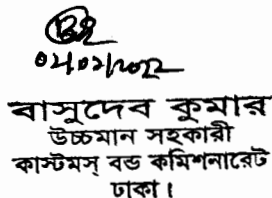 ০২/০২/২০২২
বাসুদেব কুমার
উচ্চমান সহকারী
কাস্টমস্ বন্ড কমিশনারেট
ঢাকা।